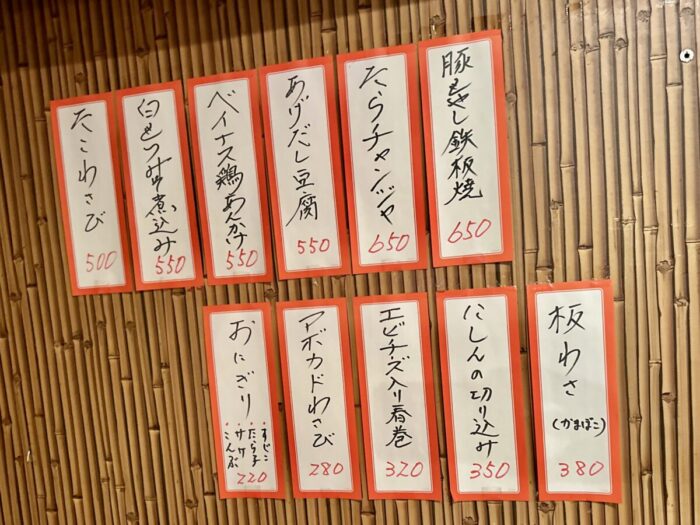 豚もやし鉄板焼
650
たらチャンジャ
650
あげだし豆腐
550
ベイナス鶏あんかけ
550
白もつみそ煮込み
550
たこわさび
500
板わさ
(かまぼこ)
380
にしんの切り込み
350
エビチーズ入り春巻
320
アボカドわさび
280
おにぎり
・すじこ
・たら子
・サケ
・こんぶ
220